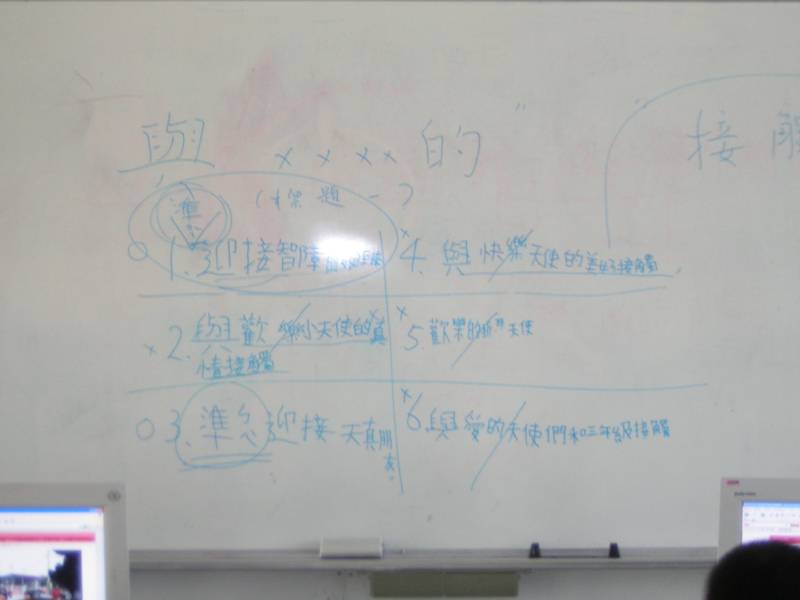 與 xxxx 的 " 接觸
(標題一)
準
1. 迎接智障
4. 與快樂天使的美好接觸
2. 與歡樂小天使的真
情接觸
5. 歡樂的折"天使
3. 準備迎接天真朋
友。
6. 與愛的天使們和三年級接觸